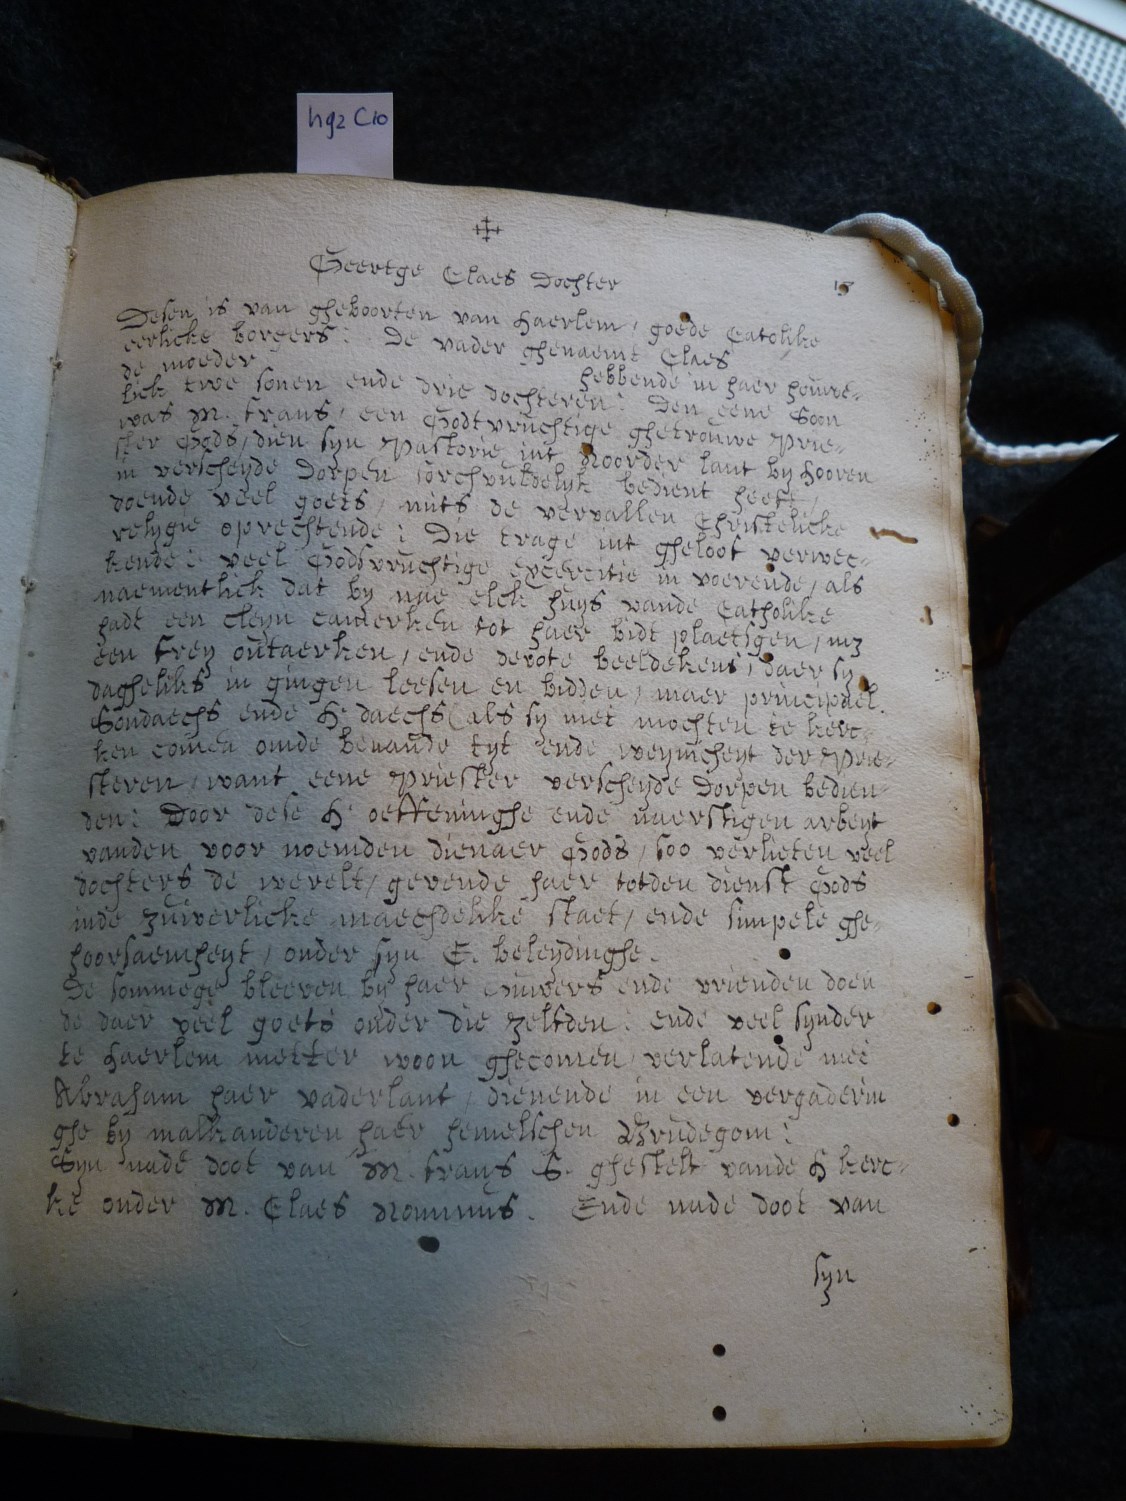 hg2 C10
Geertge Claes Dochter
15
Desen is van gheboorten van Haerlem / goede Catolike
eerlicke borgers: De vader ghenaemt Claes
de moeder hebbende in haer houwe-
lick twe sonen ende drie dochteren: Den eene Soon
was M. frans / een Godtvruchtige ghetrouwe Prie-
ster Gods / dien syn Pastorie int Noorder lant by Hooren
in verscheyde Dorpen sorchvuldelijk bedient heeft /
doende veel goets / mits de vervallen Christelicke
relygie oprechtende: Die trage int gheloof verwec-
kende: veel Godsvruchtige exercitie in voerende / als
naementlick dat by nae elck huys vande Catholike
hadt een cleyn camerken tot haer bidt plaetsgen / mz
een frey outaerken / ende devote beeldekens / daer sy
dagheliks in gingen leesen en bidden / maer principael
Sondaechs ende H. daechs (als sy niet mochten te kerc-
ken comen omde benaude tyt ende weynicheyt der Prie-
steren / want eene Priester verscheyde Dorpen bedien-
den: Door dese H. oeffeninghe ende naerstigen arbeyt
vanden voor noemden dienaer Gods / soo verlieten veel
dochters de werelt / gevende haer totden dienst Gods
inde zuiverlicke maechdelike staet / ende simpele ghe-
hoorsaemheyt / onder syn E. beleydinghe.
De sommege bleeven by haer ouwers ende vrienden doen
de daer veel goets onder die zelfden: ende veel synder
te Haerlem metter woon ghecomen / verlatende met
Abraham haer vaderlant / dienende in een vergaderin
ghe by malkanderen haer hemelschen Brudegom:
Syn nade doot van M. frans S. ghestelt vande H kerc-
ke onder M. Claes Nommus. Ende nade doot van
syn